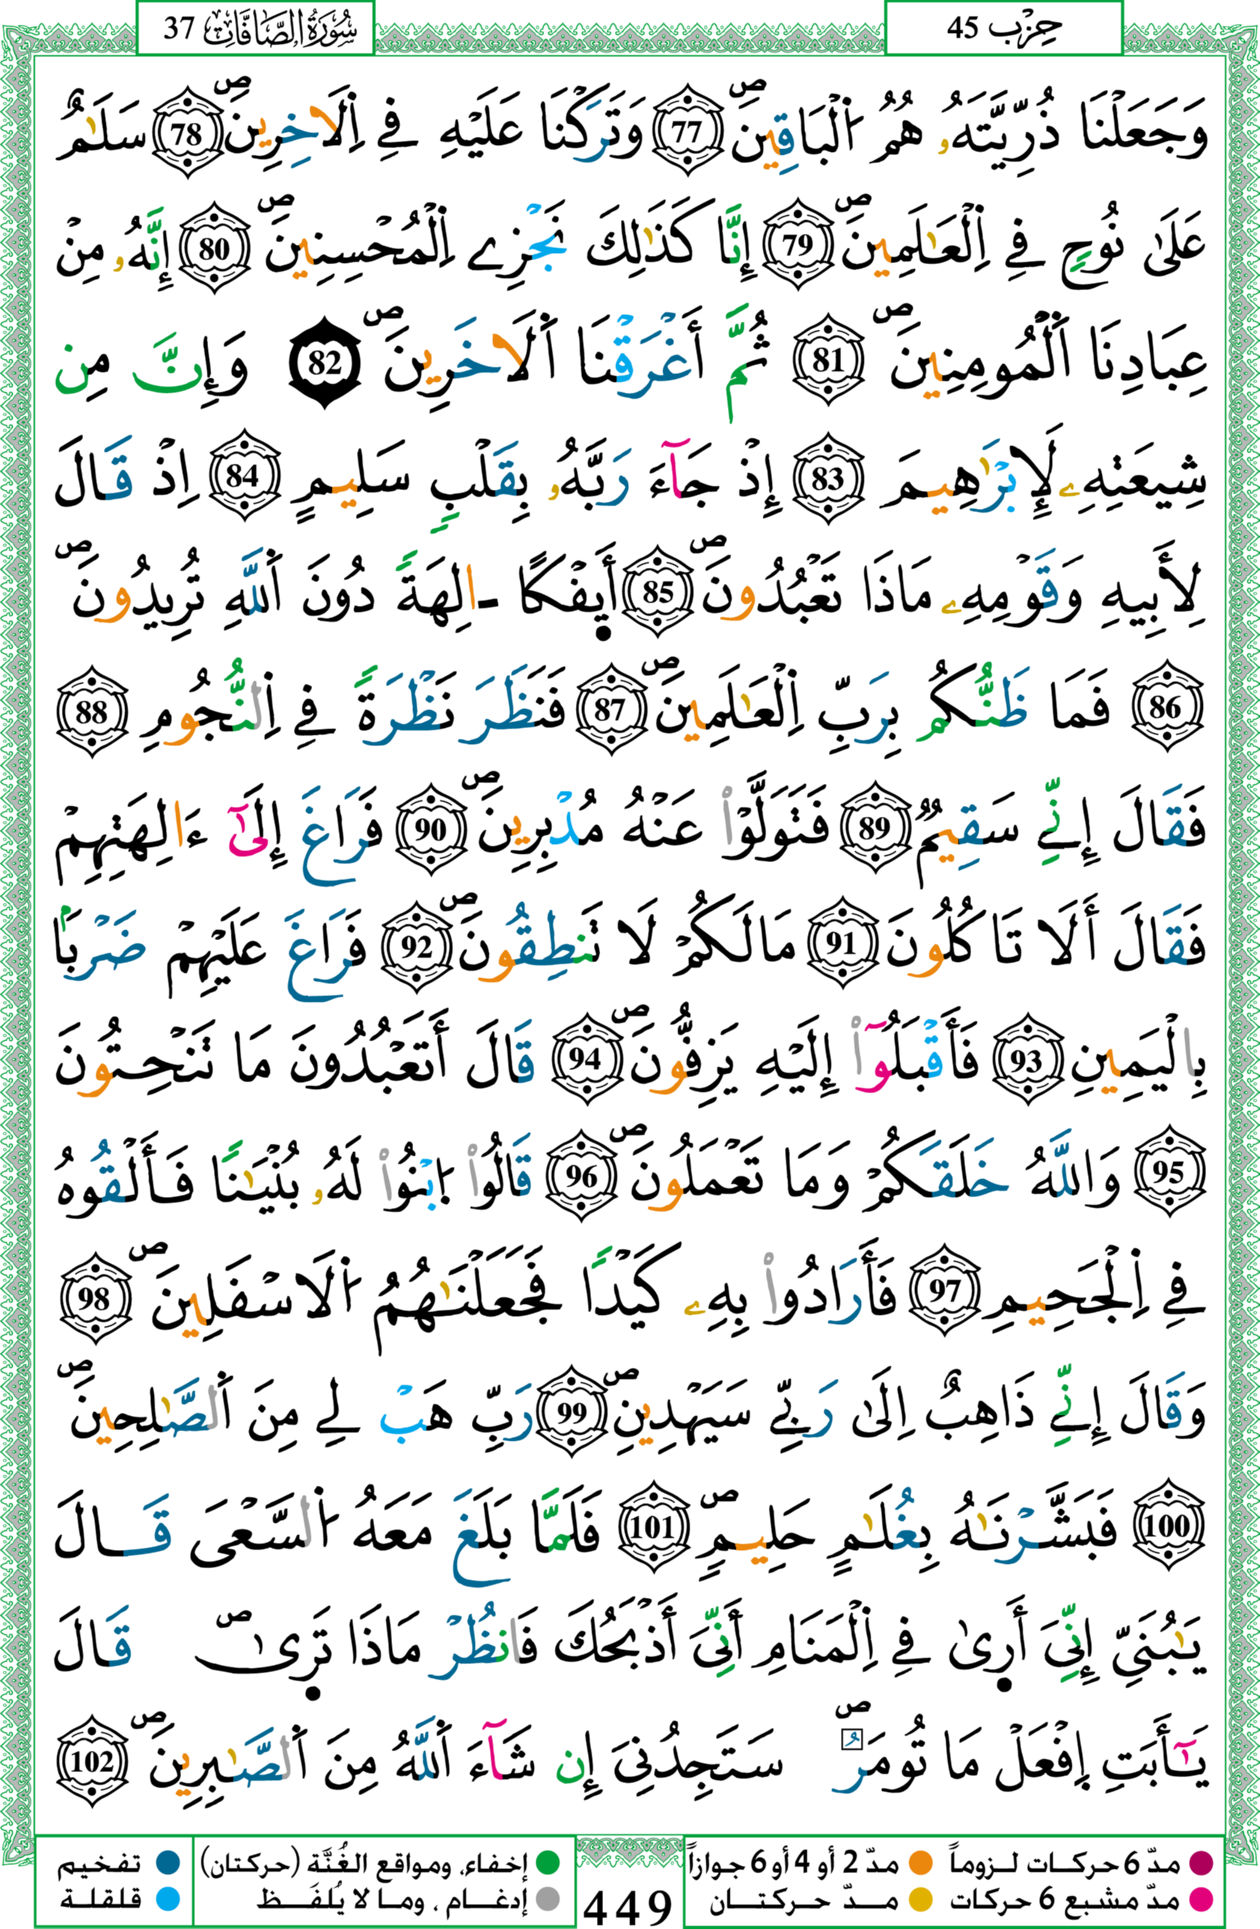 حِزْب 45
سُورَةُ الصَّافَّاتِ 37
وَجَعَلْنَا ذُرِّيَّتَهُۥ هُمُ اُ۬لْبَاقِينَۖ 77 وَتَرَكْنَا عَلَيْهِ فِے اِ۬لَاخِرِينَۖ 78 سَلَٰمٌ
عَلَىٰ نُوحٖ فِے اِ۬لْعَٰلَمِينَۖ 79 إِنَّا كَذَٰلِكَ نَجْزِے اِ۬لْمُحْسِنِينَۖ 80 إِنَّهُۥ مِنْ
عِبَادِنَا اَ۬لْمُومِنِينَۖ 81 ثُمَّ أَغْرَقْنَا اَ۬لَاخَرِينَۖ 82 وَإِنَّ مِن
شِيعَتِهِۦ لَإِبْرَٰهِيمَ 83 إِذْ جَآءَ رَبَّهُۥ بِقَلْبٖ سَلِيمٍ 84 اِذْ قَالَ
لِأَبِيهِ وَقَوْمِهِۦ مَاذَا تَعْبُدُونَۖ 85 أَئِفْكًا اٰلِهَةٗ دُونَ اَ۬للَّهِ تُرِيدُونَۖ
86 فَمَا ظَنُّكُم بِرَبِّ اِ۬لْعَٰلَمِينَۖ 87 فَنَظَرَ نَظْرَةٗ فِے اِ۬لنُّجُومِ 88
فَقَالَ إِنِّے سَقِيمٞ 89 فَتَوَلَّوْاْ عَنْهُ مُدْبِرِينَۖ 90 فَرَاغَ إِلَىٰٓ ءَالِهَتِهِمْ
فَقَالَ أَلَا تَاكُلُونَ 91 مَالَكُمْ لَا تَنطِقُونَۖ 92 فَرَاغَ عَلَيْهِمْ ضَرْبَۢا
بِالْيَمِينِ 93 فَأَقْبَلُوٓاْ إِلَيْهِ يَزِفُّونَۖ 94 قَالَ أَتَعْبُدُونَ مَا تَنْحِتُونَ
95 وَاللَّهُ خَلَقَكُمْ وَمَا تَعْمَلُونَۖ 96 قَالُواْ اُ۪بْنُواْ لَهُۥ بُنْيَٰنٗا فَأَلْقُوهُ
فِے اِ۬لْجَحِيمِ 97 فَأَرَادُواْ بِهِۦ كَيْدٗا فَجَعَلْنَٰهُمُ اُ۬لَاسْفَلِينَۖ 98
وَقَالَ إِنِّے ذَاهِبٌ اِلَىٰ رَبِّے سَيَهْدِينِۖ 99 رَبِّ هَبْ لِے مِنَ اَ۬لصَّٰلِحِينَۖ
100 فَبَشَّرْنَٰهُ بِغُلَٰمٍ حَلِيمٖۖ 101 فَلَمَّا بَلَغَ مَعَهُ اُ۬لسَّعْىَ قَالَ
يَٰبُنَيِّ إِنِّيَ أَر۪ىٰ فِے اِ۬لْمَنَامِ أَنِّيَ أَذْبَحُكَ فَانظُرْ مَاذَا تَر۪ىٰۖ قَالَ
يَٰٓأَبَتِ اِ۪فْعَلْ مَا تُومَرُۖ سَتَجِدُنِيَ إِن شَآءَ اَ۬للَّهُ مِنَ اَ۬لصَّٰبِرِينَۖ 102
مدّ 6 حركات لـزوماً مدّ 2 أو 4 أو 6 جوازاً
مدّ مشبع 6 حركات مــدّ حــركتــان
449
إخفاء، ومواقع الغُنَّة (حركتان) تفخيم
إدغــام ، ومـا لا يُلفَــظ قلقلـة